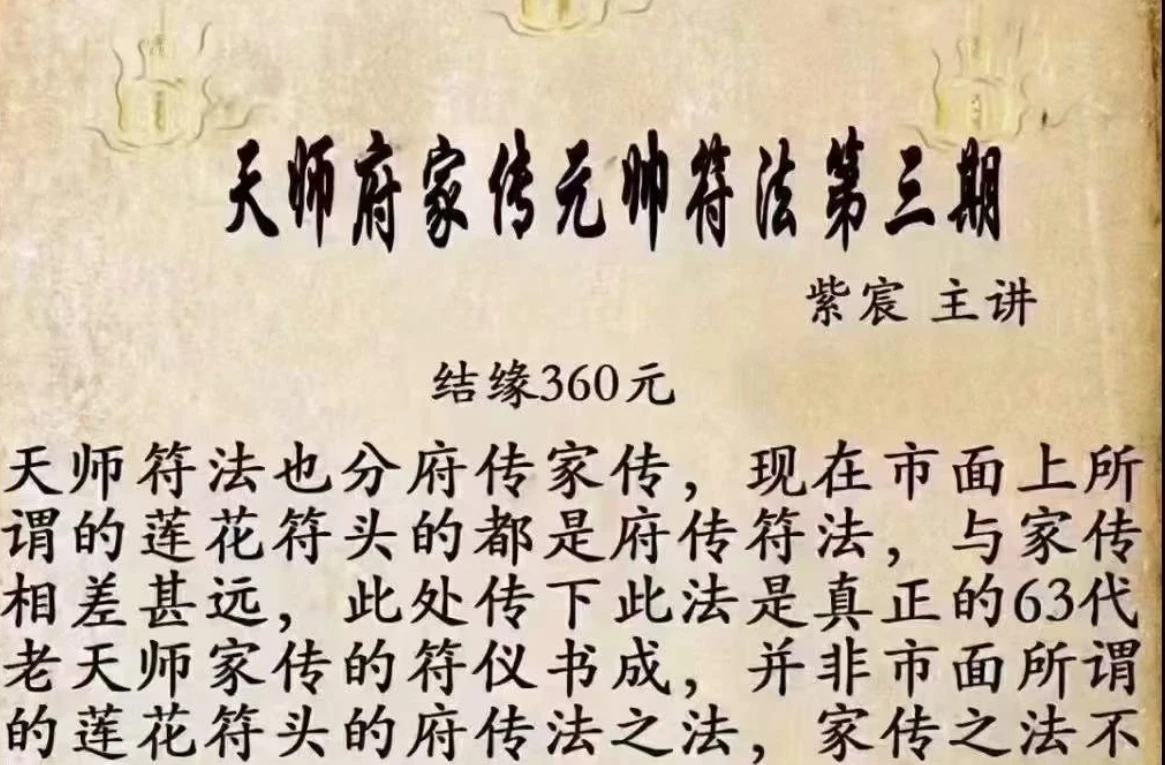 天师府家传元帅符法第三期
紫宸 主讲
结缘360元
天师符法也分府传家传，现在市面上所
谓的莲花符头的都是府传符法，与家传
相差甚远，此处传下此法是真正的63代
老天师家传的符仪书成，并非市面所谓
的莲花符头的府传法之法，家传之法不